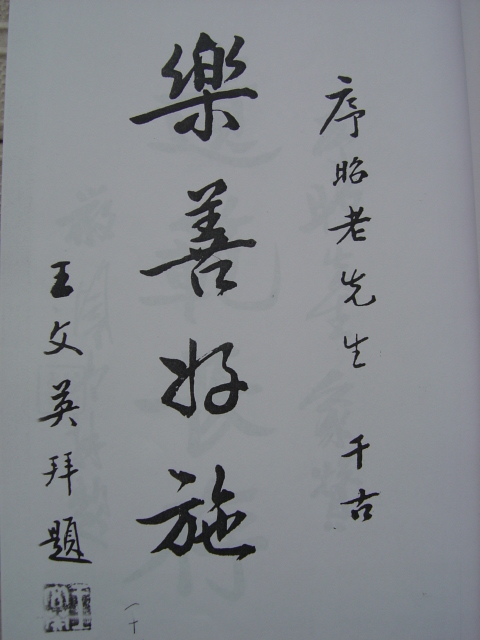 序昭老先生 千古
樂善好施
王文英拜題
一十